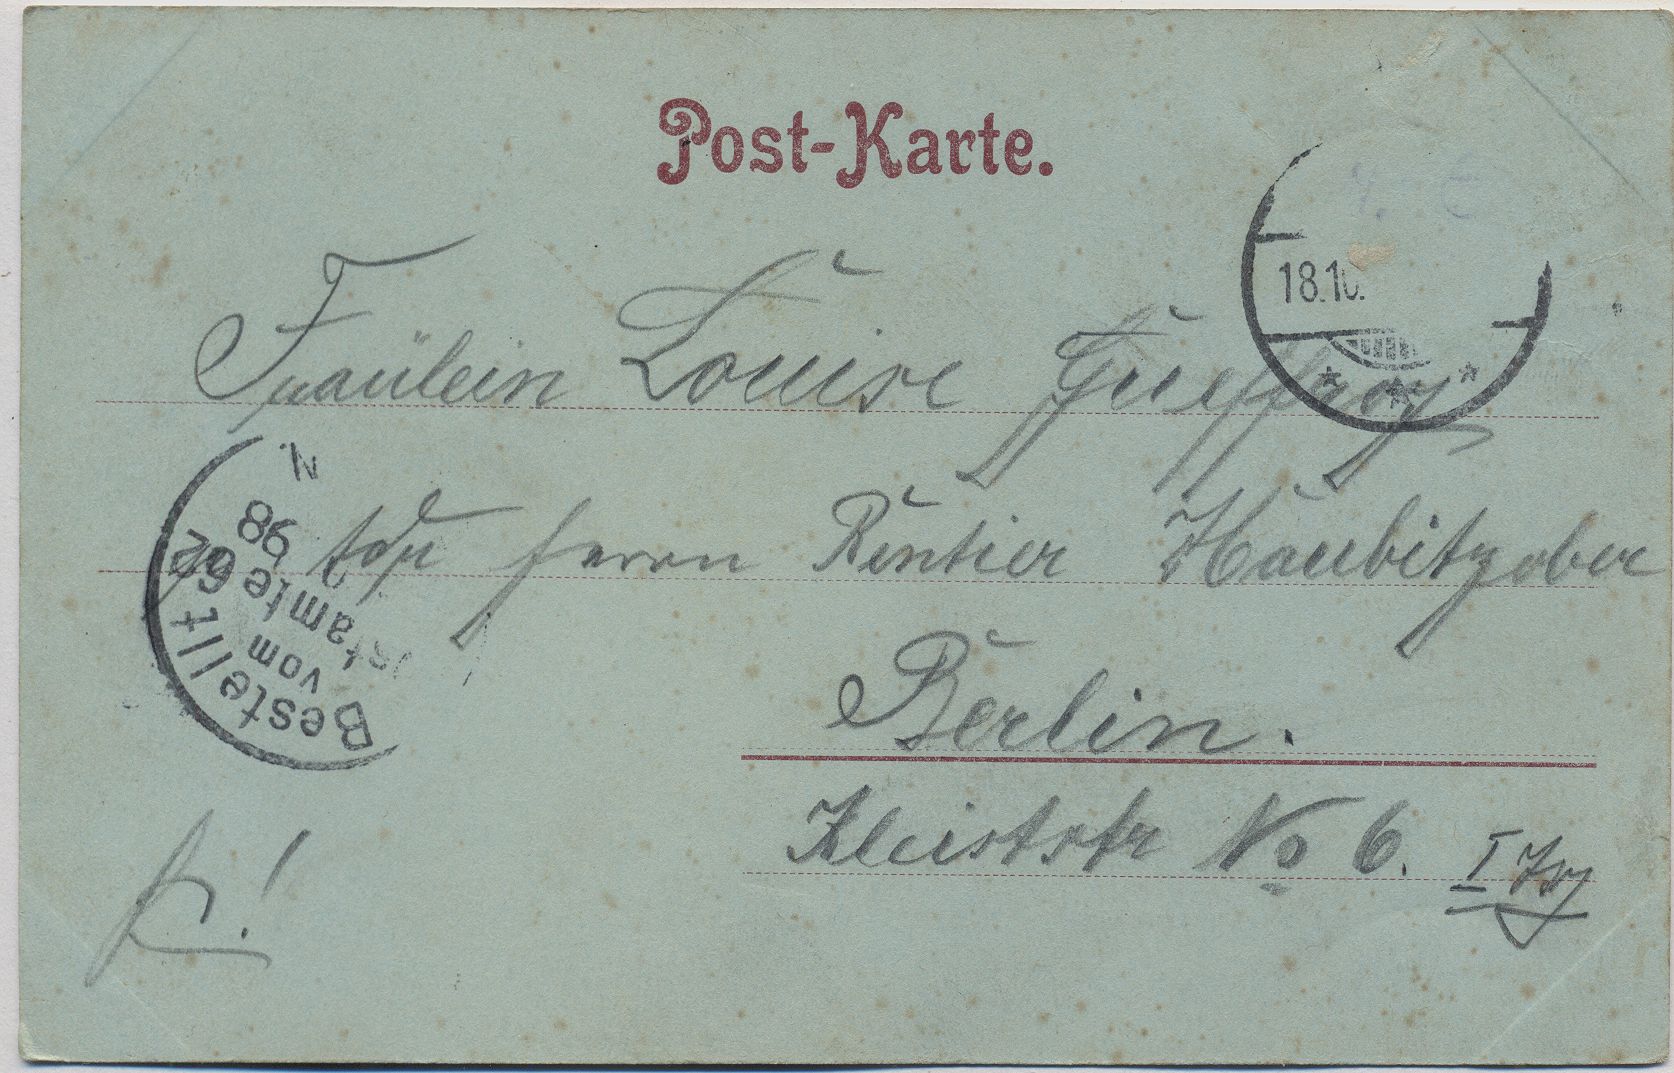 Post-Karte.
18.10.
Fräulein Louise Gueffroy
Herrn Rentier
Berlin.
Kleiststr No 6. I
fr!
Bestellt
vom
Postamte 62
98
N.